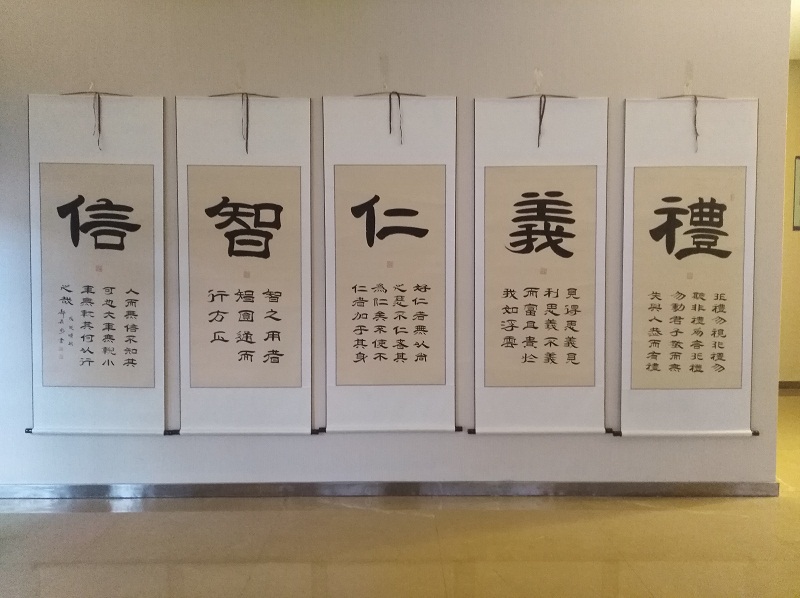 禮
非禮勿視非禮勿
聽非禮勿言非禮
勿動君子敬而無
失與人恭而有禮
義
見得思義見
利思義不義
而富且貴於
我如浮雲
仁
好仁者無以尚
之惡不仁者其
為仁矣不使不
仁者加乎其身
智
智之用者
圓通而
行方正
信
人而無信不知其
可也大車無輗小
車無軏其何以行
之哉